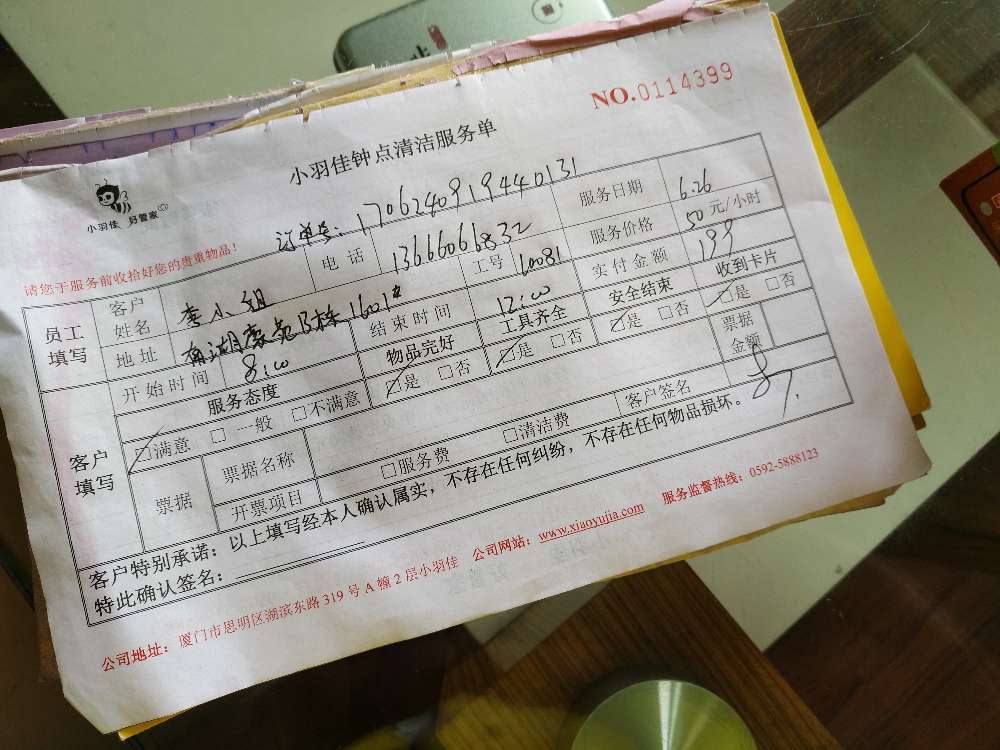 NO.0114399
小羽佳钟点清洁服务单
小羽佳 好管家
订单号：170624091944​0131
请您于服务前收拾好您的贵重物品！
员工填写
客户姓名 李小姐 电话 13666066832 服务日期 6.26
地址 南湖豪苑B栋1601# 工号 160081 服务价格 50元/小时
开始时间 8:00 结束时间 12:00 实付金额 199
客户填写
服务态度 物品完好 工具齐全 安全结束 收到卡片
□满意 □一般 □不满意 □是 □否 □是 □否 □是 □否 □是 □否
票据 票据名称 票据金额
开票项目 □服务费 □清洁费 客户签名
客户特别承诺：以上填写经本人确认属实，不存在任何纠纷，不存在任何物品损坏。
特此确认签名：
公司地址：厦门市思明区湖滨东路319号A幢2层小羽佳 公司网站：www.xiaoyujia.com 服务监督热线：0592-5888123